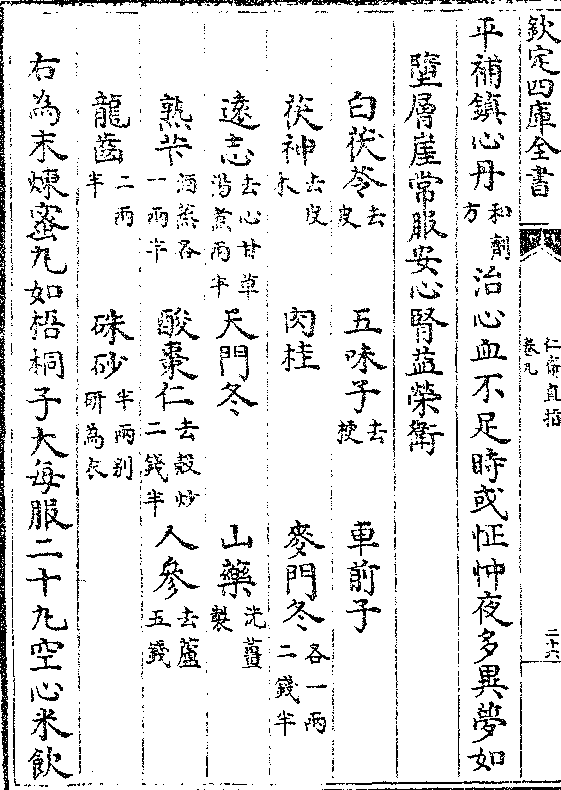 欽定四庫全書
仁齋直指
卷九
二十六
平補鎮心丹和劑方治心血不足時或怔忡夜多異夢如
墮層崖常服安心腎益榮衛
白茯苓去皮 五味子去梗 車前子
茯神去皮木 肉桂 麥門冬各一兩二錢半
遠志去心甘草湯煮兩半 天門冬 山藥洗薑製
熟苄酒蒸各一兩半 酸棗仁去殼炒二錢半 人參去蘆五錢
龍齒二兩半 硃砂半兩別研為衣
右為末煉蜜丸如梧桐子大每服二十丸空心米飲